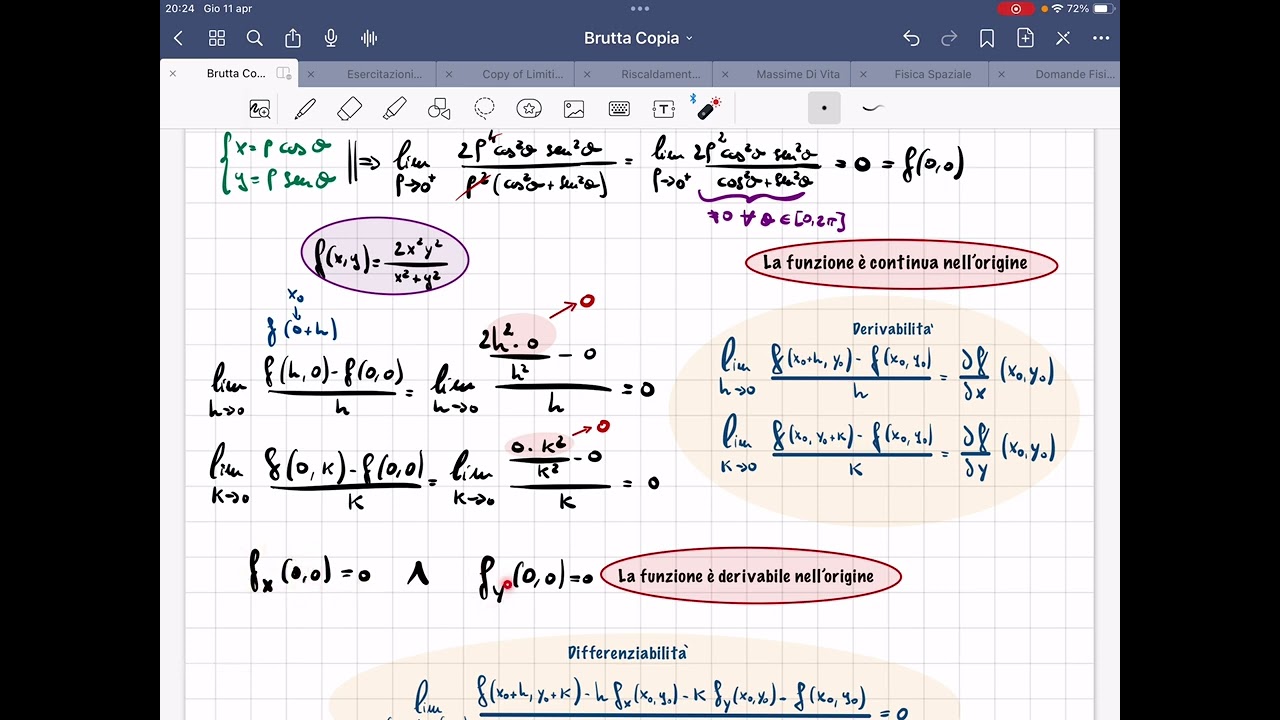 20:24 Gio 11 apr
72%
Brutta Copia
Brutta Co...
Esercitazioni...
Copy of Limiti...
Riscaldament...
Massime Di Vita
Fisica Spaziale
Domande Fisi...
{ x = ρ cos θ
y = ρ sen θ
|| ⇒ lim ρ→0⁺ 2ρ⁴ cos²θ sen²θ / ρ² (cos²θ + sen²θ) = lim ρ→0⁺ 2ρ² cos²θ sen²θ / cos²θ + sen²θ = 0 = f(0,0)
≠0 ∀ θ ∈ [0,2π]
f(x,y) = 2x²y² / x²+y²
La funzione è continua nell'origine
x₀
↓
f (0+h)
lim h→0 f(h,0) - f(0,0) / h = lim h→0 (2h²·0 / h² - 0) / h = 0
→ 0
lim k→0 f(0,k) - f(0,0) / k = lim k→0 (0·k² / k² - 0) / k = 0
→ 0
Derivabilità
lim h→0 f(x₀+h, y₀) - f(x₀,y₀) / h = ∂f/∂x (x₀,y₀)
lim k→0 f(x₀,y₀+k) - f(x₀,y₀) / k = ∂f/∂y (x₀,y₀)
fx (0,0) = 0 ∧ fy (0,0) = 0
La funzione è derivabile nell'origine
Differenziabilità
lim f(x₀+h, y₀+k) - h fx(x₀,y₀) - k fy(x₀,y₀) - f(x₀,y₀) = 0